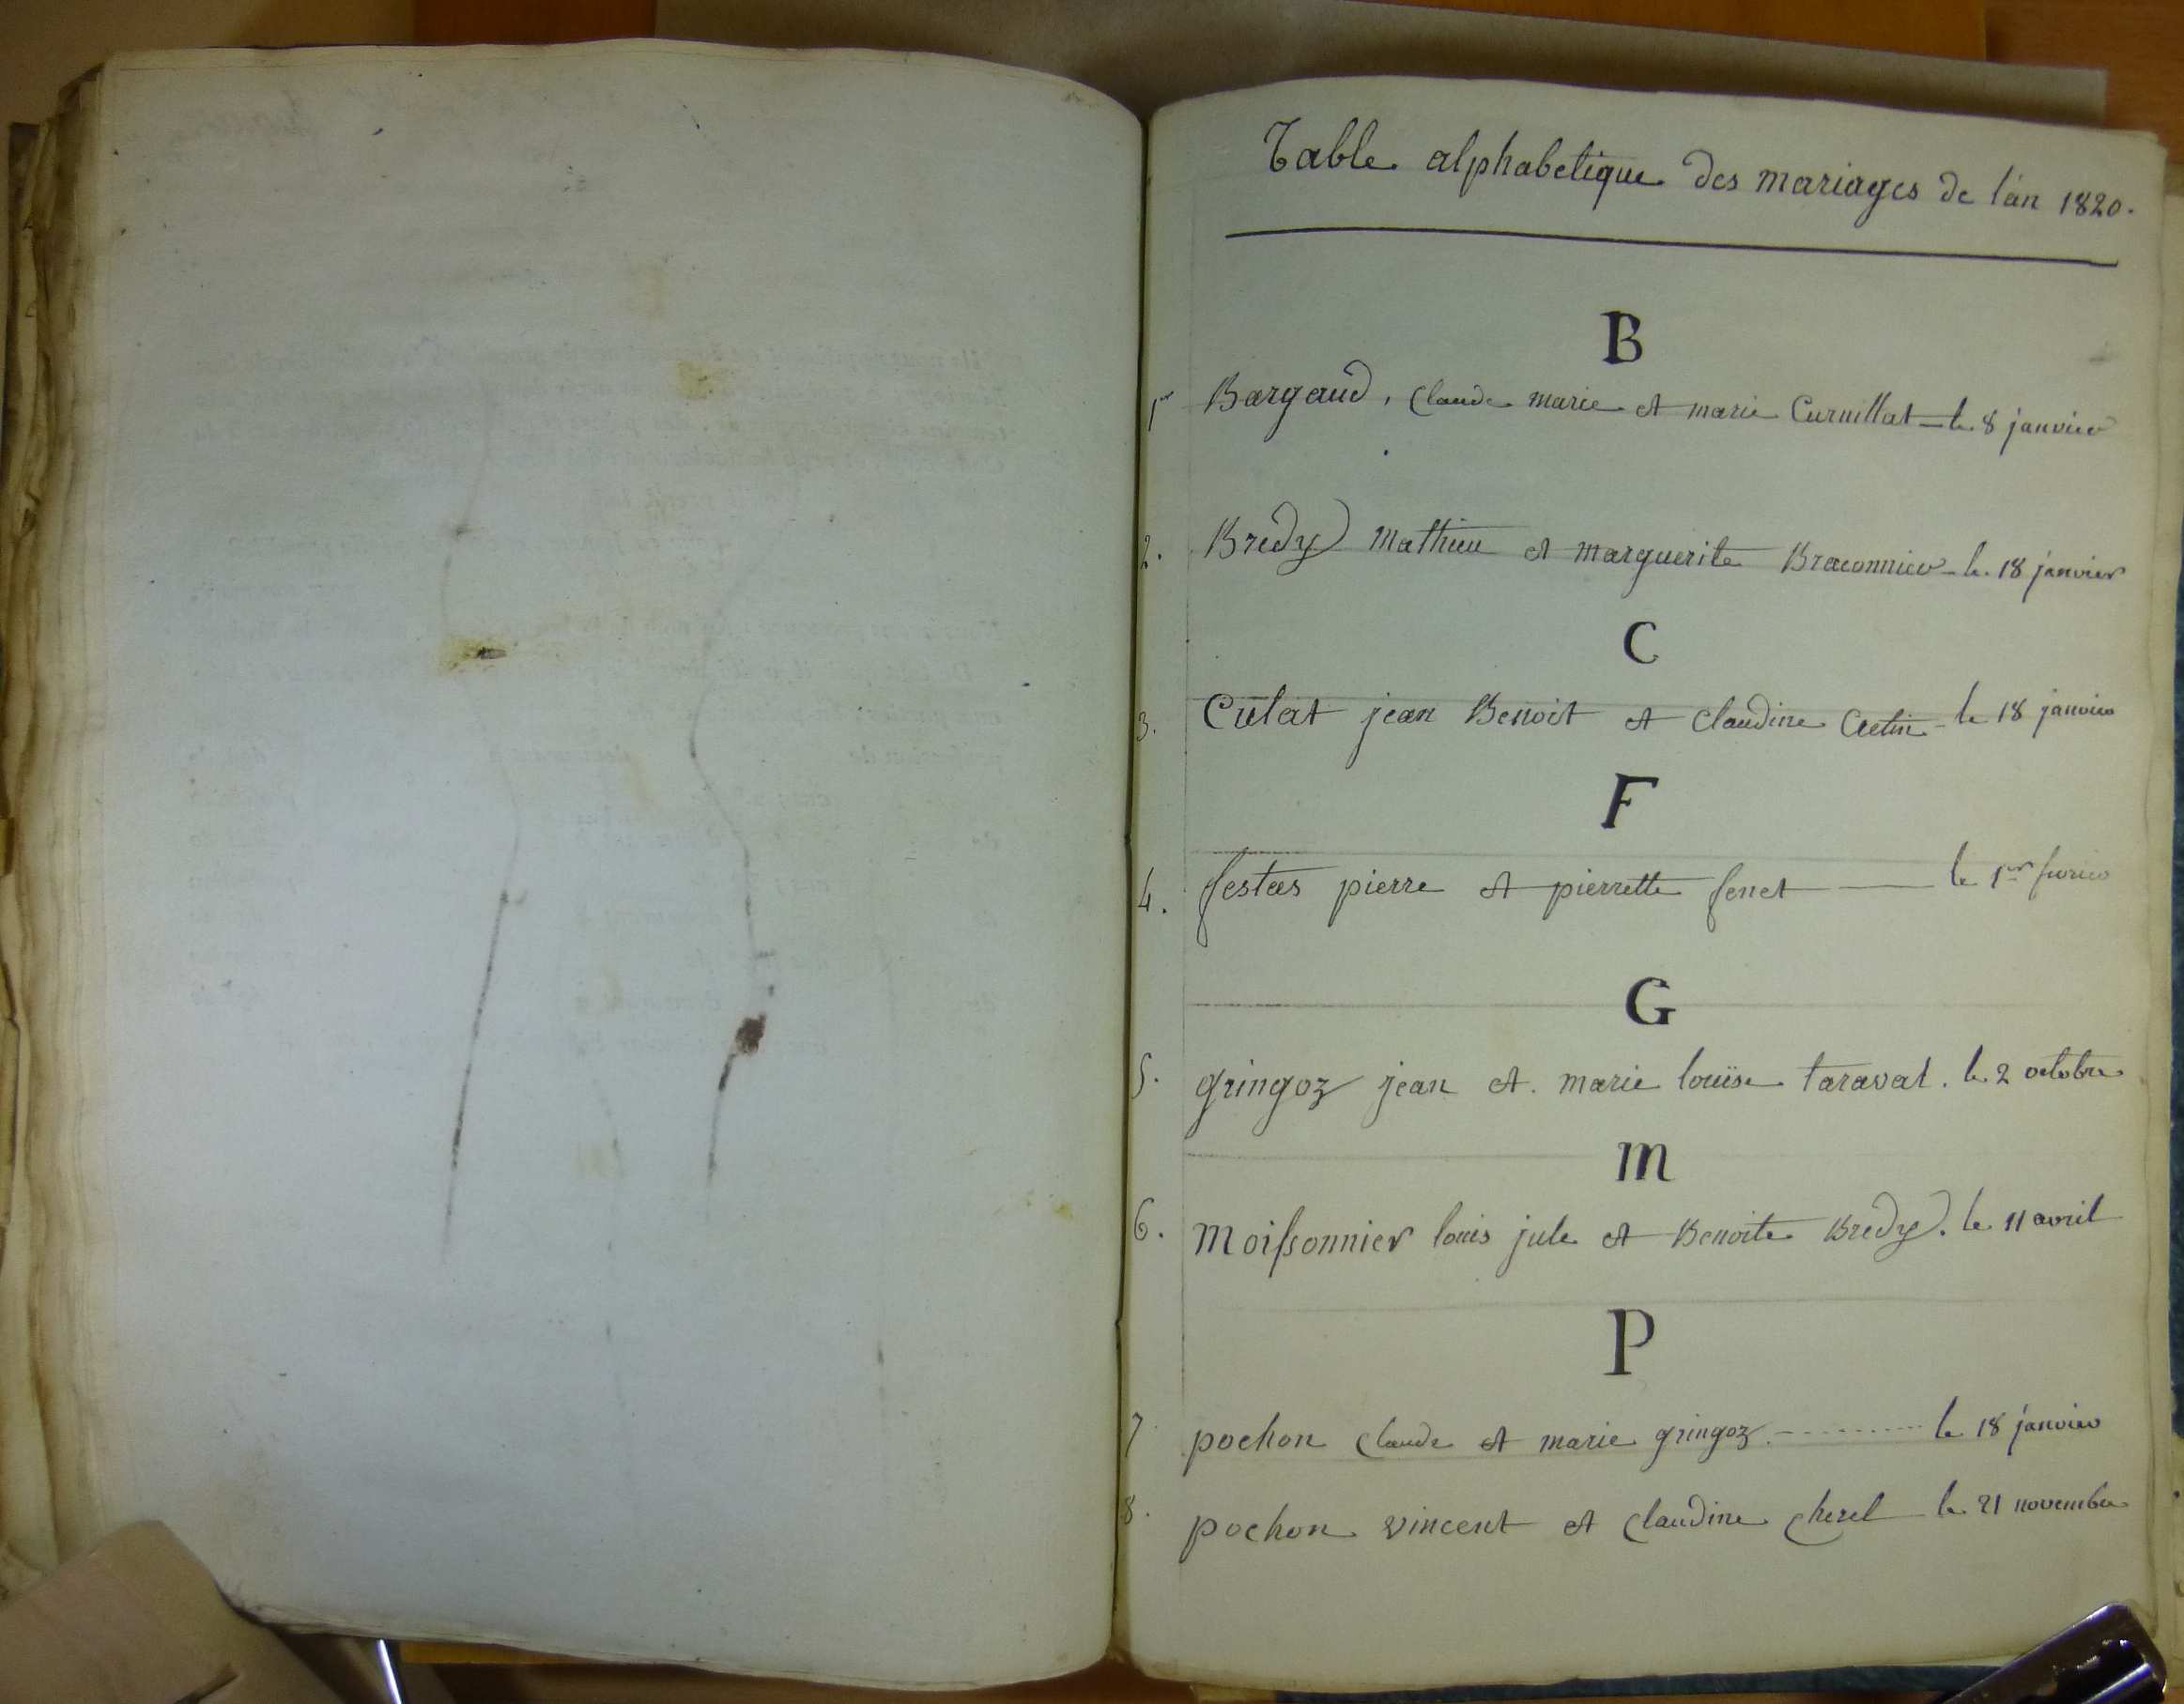 Table alphabetique des mariages de l'an 1820.
B
1er Bargaud, Claude marie et marie Curnillat - le 8 janvier
2. Bredy Mathieu et marguerite Braconnier - le 18 janvier
C
3. Culat jean Benoit et Claudine Cretin - le 18 janvier
F
4. festas pierre et pierrette fenet — le 1er fevrier
G
5. gringoz jean et marie louise taravat. le 2 octobre
m
6. Moissonnier louis jule et Benoite Bredy. le 11 avril
P
7 pochon Claude et marie gringoz. --------- le 18 janvier
8. pochon vincent et Claudine cherel le 21 novembre